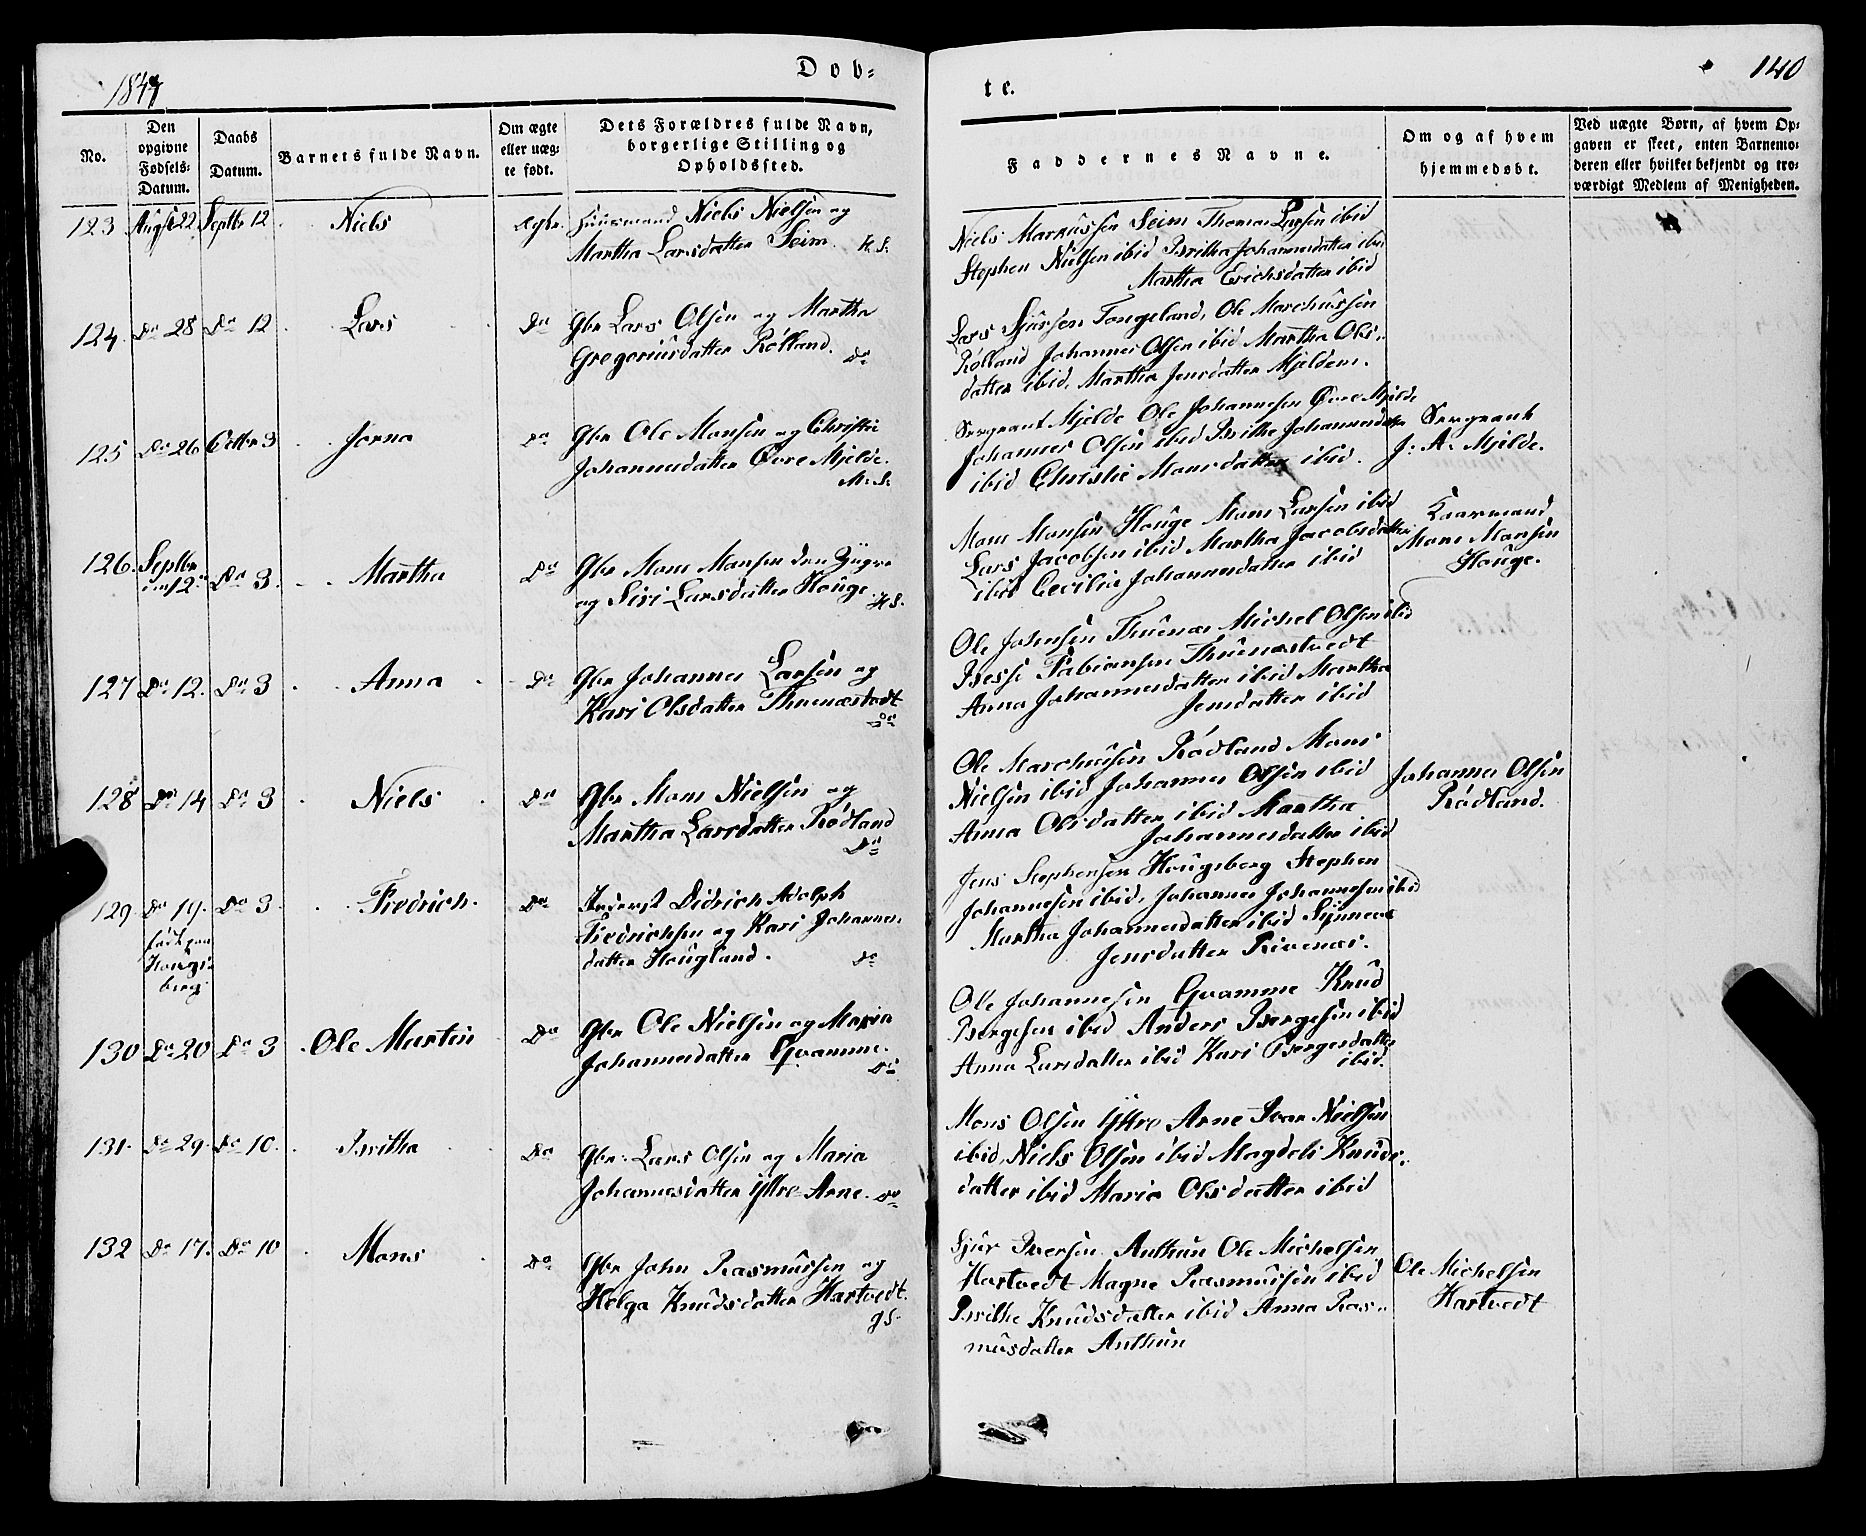 1847
Døb=
te.
140
No.
Den opgivne Fødsels-Datum.
Daabs Datum.
Barnets fulde Navn.
Om ægte eller uægte født.
Dets Forældres fulde Navn, borgerlige Stilling og Opholdssted.
Faddernes Navne.
Om og af hvem hjemmedøbt.
Ved uægte Børn, af hvem Opgaven er skeet, enten Barnemoderen eller hvilket bekjendt og troværdigt Medlem af Menigheden.
123 Augst 22 Septbr 12 Niels Ægte. Huusmand Niels Nielsen og
Martha Larsdatter Seim. H. S.
Niels Marcussen Seim Thomas Larsen ibid
Stephen Nielsen ibid Britha Johannesdatter ibid
Martha Erichsdatter ibid
124. Do 28 Do 12 Lars Do Gbr Lars Olsen og Martha
Gregoriusdatter Rølland. Do
Lars Sjursen Tongeland, Ole Marchussen
Rølland Johannes Olsen ibid Martha Ols-
datter ibid. Martha Jensdatter Mjeldem.
125 Do 26 Octbr 3 Jorna Do Gbr Ole Monsen og Christie
Johannesdatter Øvre Mjelde.
M. S.
Sergeant Mjelde Ole Johannesen Øvre Mjelde
Johannes Olsen ibid Brithe Johannesdatter
ibid Christie Monsdatter ibid.
Sergeant
J: A: Mjelde.
126. Septbr
den 12te Do 3. Martha Do Gbr Mons Monsen den Yngre
og Siri Larsdatter Houge. H S.
Mons Monsen Houge Mons Larsen ibid
Lars Jacobsen ibid Martha Jacobsdatter
ibid Cecilia Johannesdatter ibid
Kaarmand
Mons Monsen
Houge.
127 Do 12. Do 3 Anna Do Gbr Johannes Larsen og
Kari Olsdatter Thuenæstvedt
Do
Ole Johnsen Thuenæs Michel Olsen ibid
Besse Fabiansen Thuenæstvedt
Anna Johannesdatter ibid Martha
Jensdatter ibid
128 Do 14 Do 3 Niels Do Gbr Mons Nielsen og
Martha Larsdatter Rødland
Do
Ole Marchussen Rødland Mons
Nielsen ibid Johannes Olsen ibid
Anna Olsdatter ibid Martha
Johannesdatter ibid
Johannes Olsen
Rødland.
129 Do 19. Do 3 Fredrich. Do Inderst Didrich Adolph
født paa
Hougs-
berg
Fredrichsen og Kari Johannes-
datter Hougland. Do
Jens Stephensen Hougsberg Stephen
Johannesen ibid, Johannes Johannesen ibid
Martha Johannesdatter ibid Synneva
Jensdatter Rivenæs.
130 Do 20 Do 3 Ole Martin Do Gbr Ole Nielsen og Maria
Johannesdatter Qvamme.
Do
Ole Johannesen Qvamme Knud
Børgesen ibid Anders Børgesen ibid
Anna Larsdatter ibid Kari Børgesdatter
ibid.
131. Do 29. Do 10. Britha Do Gbr. Lars Olsen og Maria
Johannesdatter Yttre Arne. Do
Mons Olsen Yttre Arne Iver Nielsen
ibid, Niels Olsen ibid Magdeli Knuds-
datter ibid Maria Olsdatter ibid
132 Do 17. Do 10 Mons Do Gbr John Rasmussen og
Helga Knudsdatter Hartvedt.
G S.
Sjur Iversen Anthun Ole Michelsen
Hartvedt Magne Rasmussen ibid
Brithe Knudsdatter ibid Anna Ras-
musdatter Anthun
Ole Michelsen
Hartvedt